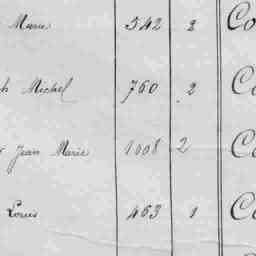 Marie 542 2 Co
h Michel 760 2 Co
Jean Marie 1008 2 Co
Louis 463 1 Co